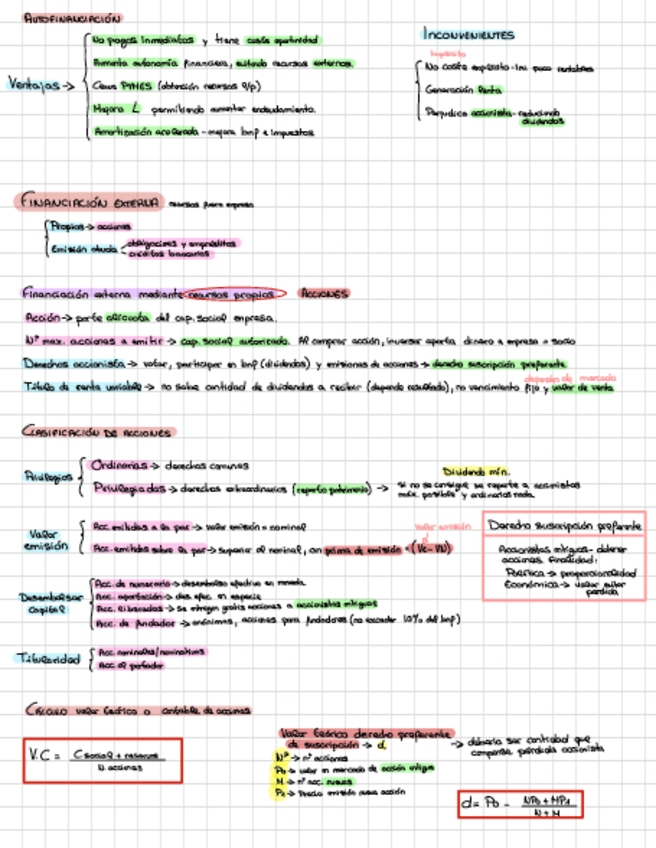 AUTOFINANCIACIÓN
Ventajas →
No pagos inmediatos y tiene coste oportunidad
Aumenta autonomía financiera, evitando recursos externos.
Caus PYMES (obtención recursos l/p)
Mejora L permitiendo aumentar endeudamiento.
Amortización acelerada - mejora bnp e impuestos
INCONVENIENTES
Impuesto
No coste explícito - inv. poco rentables
Generación lenta
Perjudica accionista - reduciendo
dividendos
FINANCIACIÓN EXTERNA recursos fuera empresa
Propios → acciones
Emisión deuda
obligaciones y empréstitos
créditos bancarios
Financiación externa mediante recursos propios ACCIONES
Acción → parte alícuota del cap. social empresa.
Nº max. acciones a emitir → cap. social autorizado. Al comprar acción, inversor aporta dinero a empresa = socio
Derechos accionista → votar, participar en bnp (dividendos) y emisiones de acciones → derecho suscripción preferente
depende de mercado
Título de renta variable → no sabe cantidad de dividendos a recibir (depende resultado), no vencimiento fijo y valor de venta
CLASIFICACIÓN DE ACCIONES
Privilegios
Ordinarias → derechos comunes
Privilegiadas → derechos extraordinarios (reparto patrimonio) →
Dividendo mín.
si no se consigue se reparte a accionistas
máx. posible y ordinarios nada.
Valor
emisión
Acc. emitidas a la par → valor emisión = nominal
Acc. emitidas sobre la par → superior al nominal, con prima de emisión = (Ve - VN)
Valor emisión
Derecho suscripción preferente
Accionistas antiguos - obtener
acciones. Finalidad:
Política → proporcionalidad
Económica → evitar
pérdida
Desembolsar
capital
Acc. de numerario → desembolso efectivo en moneda.
Acc. aportación → des. efec. en especie
Acc. liberadas → se entregan gratis acciones a accionistas antiguos
Acc. de fundador → anónimas, acciones para fundadores (no exceder 10% del bnp)
Titularidad
Acc. nominales/nominativas
Acc. al portador
CÁLCULO valor teórico o contable de acciones
V.C = C social + reservas / N. acciones
Valor teórico derecho preferente
de suscripción → d
→ debería ser cantidad que
compense pérdida accionista
N → nº acciones
P0 → valor en mercado de acción antigua
M → nº acc. nuevas
P1 → Precio emisión nueva acción
d = P0 - NP0 + MP1 / N + M